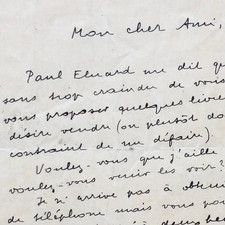 Mon cher Ami,
Paul Eluard me dit qu
sans trop craindre de vous
vous proposer quelques livre
désire vendre (ou plutôt do
contraint de me défaire).
Voulez-vous que j'aille
voulez-vous venir les voir?
Je n'arrive pas à obteni
de téléphone mais vous po